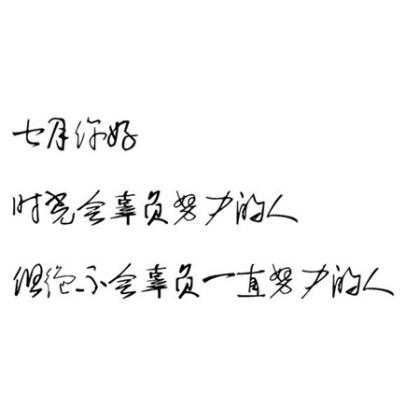 七月你好
时光会辜负努力的人
但绝不会辜负一直努力的人